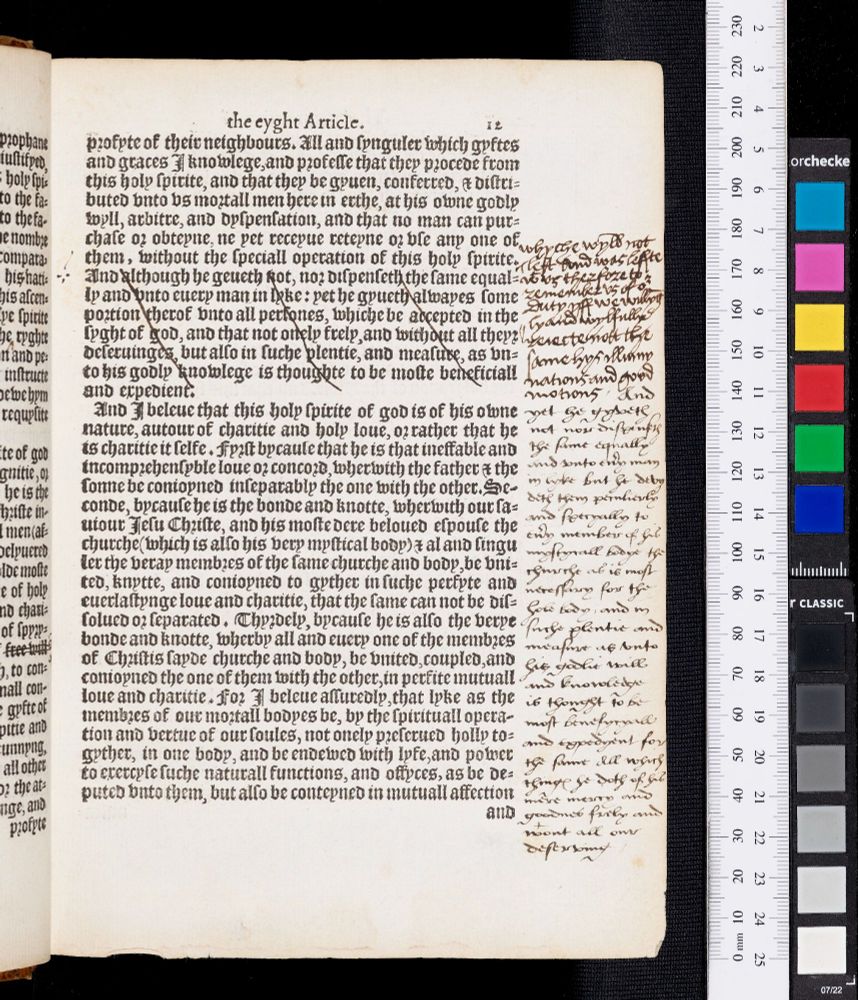 prophane
iustifyed,
holy spi-
to the fa-
to the fa-
e nombre
compara-
his hati-
his ascen-
ye spirite
he ryghte
n and pe-
instructe
dewe hym
requysite
te of god
gnitie, or
he is the
hriste in-
l men (af-
delyuered
lde moste
e of holy
nd chari-
of spyry-
free will
h, to con-
nall con-
e gyfte of
pitie and
cunnyng,
all other
or the at-
nge, and
profyte
the eyght Article. 12
profyte of their neighbours. All and synguler which gyftes
and graces I knowlege, and professe that they procede from
this holy spirite, and that they be gyuen, conferred, & distri-
buted vnto vs mortall men here in erthe, at his owne godly
wyll, arbitre, and dyspensation, and that no man can pur-
chase or obteyne, ne yet receyue reteyne or vse any one of
them, without the speciall operation of this holy spirite.
And although he geueth not, nor dispenseth the same equal-
ly and vnto euery man in lyke: yet he gyueth alwayes some
portion therof vnto all persones, whiche be accepted in the
syght of god, and that not onely frely, and without all theyr
deseruinges, but also in suche plentie, and measure, as vn-
to his godly knowlege is thoughte to be moste beneficiall
and expedient.
And I beleue that this holy spirite of god is of his owne
nature, autour of charitie and holy loue, or rather that he
is charitie it selfe. Fyrst bycause that he is that ineffable and
incomprehensyble loue or concord, wherwith the father & the
sonne be conioyned inseparably the one with the other. Se-
conde, bycause he is the bonde and knotte, wherwith our sa-
uiour Jesu Christe, and his moste dere beloued espouse the
churche (which is also his very mystical body) & al and singu
ler the veray membres of the same churche and body, be vni-
ted, knytte, and conioyned to gyther in suche perfyte and
euerlastynge loue and charitie, that the same can not be dis-
solued or separated. Thyrdely, bycause he is also the verye
bonde and knotte, wherby all and euery one of the membres
of Christis sayde churche and body, be vnited, coupled, and
conioyned the one of them with the other, in perfite mutuall
loue and charitie. For I beleue assuredly, that lyke as the
membres of our mortall bodyes be, by the spirituall opera-
tion and vertue of our soules, not onely preserued holly to-
gyther, in one body, and be endewed with lyfe, and power
to exercyse suche naturall functions, and offyces, as be de-
puted vnto them, but also be conteyned in mutuall affection
and
whyche wyll not
and was
vs therfore to
remember vs of or
duty
ly and wylfully
reiecte nott the
same hys illumy
nations and good
motions. And
yet he gyveth
not nor dispenseth
the same equally
and vnto euery man
in lyke but he
deth them peculierly
and specyally to
euery member of his
mysticall bodye the
churche as is most
necessary for the
hole body, and in
suche plentie and
measure as vnto
his godlie will
and knowledge
is thought to be
most beneficyall
and expedyent for
the same all which
thinges he doth of his
mere mercy and
goodnes frely and
wont all our
deserving
orchecke
r CLASSIC
07/22
230 220 210 200 190 180 170 160 150 140 130 120 110 100 90 80 70 60 50 40 30 20 10 0 mm
2 3 4 5 6 7 8 9 10 11 12 13 14 15 16 17 18 19 20 21 22 23 24 25